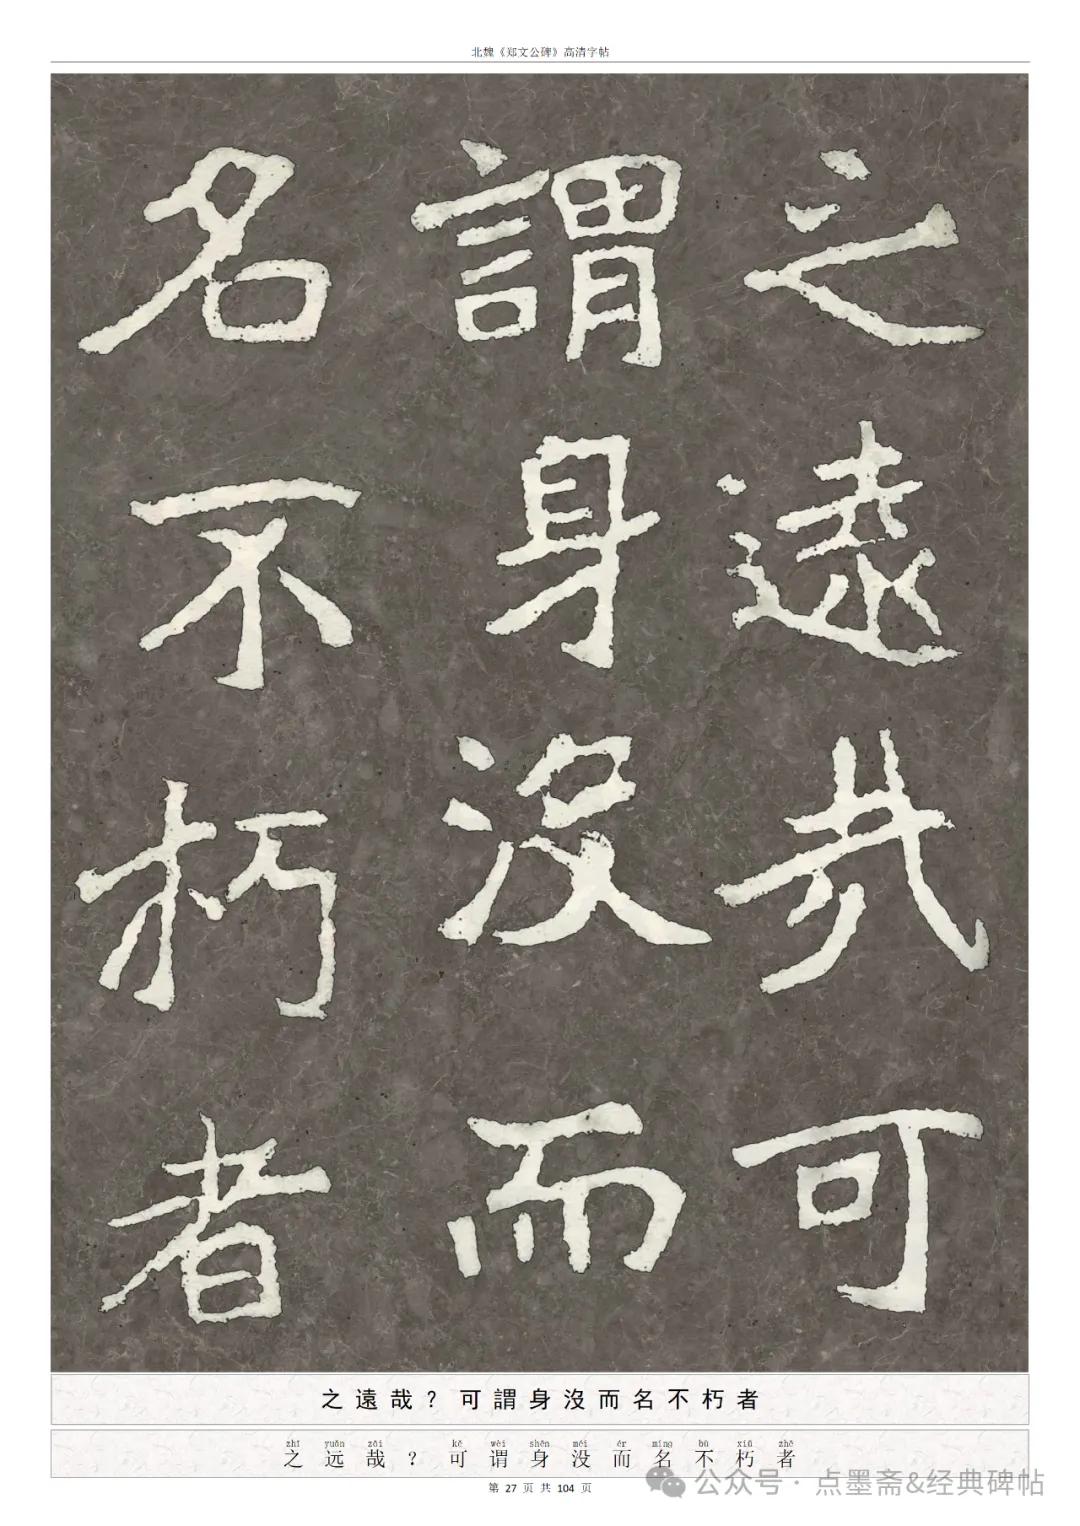 北魏《郑文公碑》高清字帖
之遠哉可
謂身沒而
名不朽者
之遠哉？可謂身沒而名不朽者
zhī yuǎn zāi kě wèi shēn méi ér míng bù xiǔ zhě
之远哉？可谓身没而名不朽者
第 27 页 共 104 页
公众号 · 点墨斋&经典碑帖